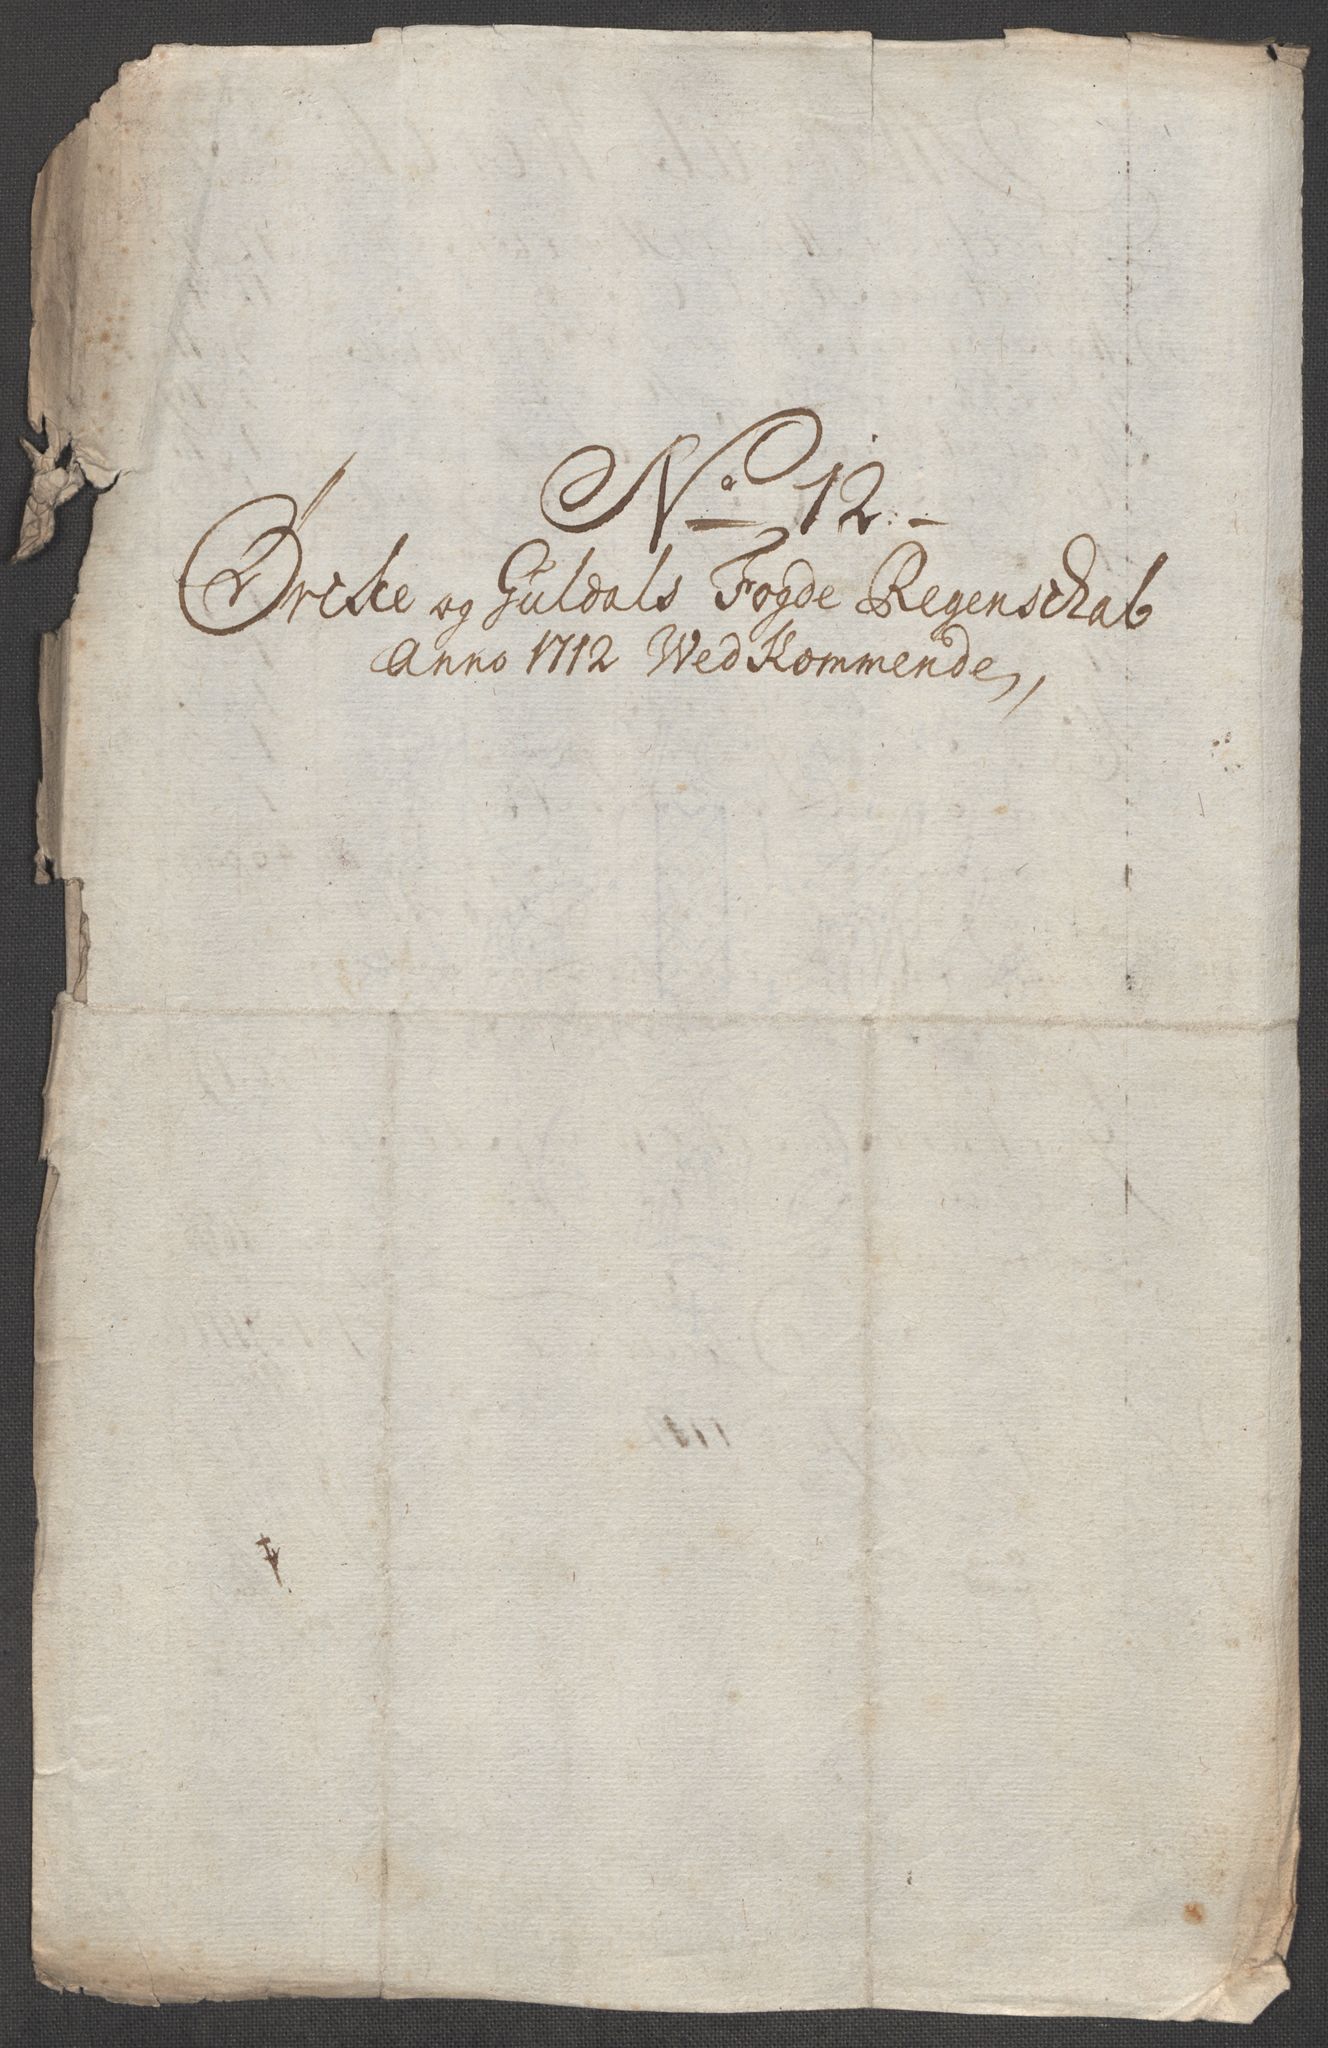 No 12.
Örcke og Guldals Fogde Regenschab
Anno 1712 Wedkommende,